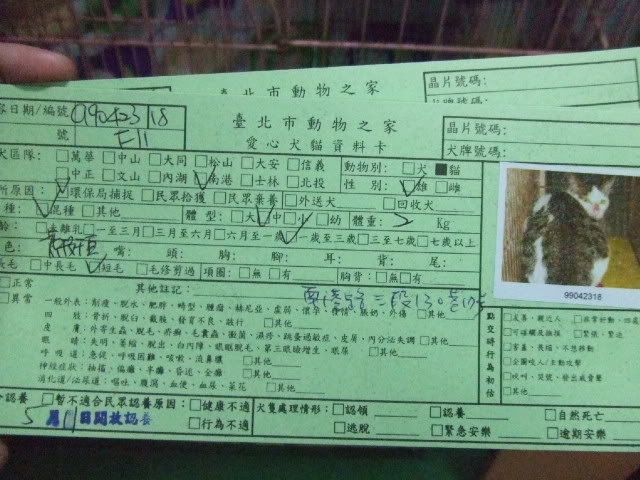 臺北市動物之家
晶片號碼:
容日期/編號 990423 18
號 E11
臺北市動物之家
愛心犬貓資料卡
晶片號碼:
犬牌號碼:
犬區隊: □萬華 □中山 □大同 □松山 □大安 □信義 動物別: □犬 ■貓
□中正 □文山 □內湖 □南港 □士林 □北投 性別: □雄 □雌
所原因: □環保局捕捉 □民眾拾獲 □民眾棄養 □外送犬 □回收犬
種: □混種 □其他 體型: □大 □中 □小 □幼 體重: 2 Kg
齡: □未離乳 □一至三月 □三月至六月 □六月至一歲 □一歲至三歲 □三至七歲 □七歲以上
色: 嘴: 頭: 胸: 腳: 耳: 背: 尾:
長毛 □中長毛 □短毛 □毛修剪過 項圈: □無 □有 胸背: □無 □有
□正常 其他註記:
□異常 一般外表: 削瘦、脫水、肥胖、畸型、腫瘤、赫尼亞、虛弱、懷孕、發情、脹奶、外傷 □其他
四肢: 骨折、脫臼、截肢、發育不良、跛行 □其他
皮膚: 外寄生蟲、脫毛、疥癬、毛囊蟲、黴菌、濕疹、跳蚤過敏症、皮屑、內分泌失調 □其他
眼睛: 失明、萎縮、脫出、白內障、眼瞼脫毛、第三眼瞼增生、眼屎 □其他
呼吸道: 急促、呼吸困難、咳嗽、流鼻膿 □其他
神經症狀: 抽搐、偏癱、半癱、昏迷、全癱 □其他
消化道/泌尿道: 嘔吐、腹瀉、血便、血尿、菜花 □其他
99042318
點交時行為初估
□友善、親近人
□可碰觸及撫摸 □緊張、緊迫
□害羞、畏縮、不想移動
□企圖咬人/主動攻擊
□吠叫、哭號、發出威脅聲
□其他
認養 □暫不適合民眾認養原因: □健康不適 犬隻處理情形: □認領 □認養 □自然死亡
5月11日開放認養 □行為不適 □逃脫 □緊急安樂 □逾期安樂